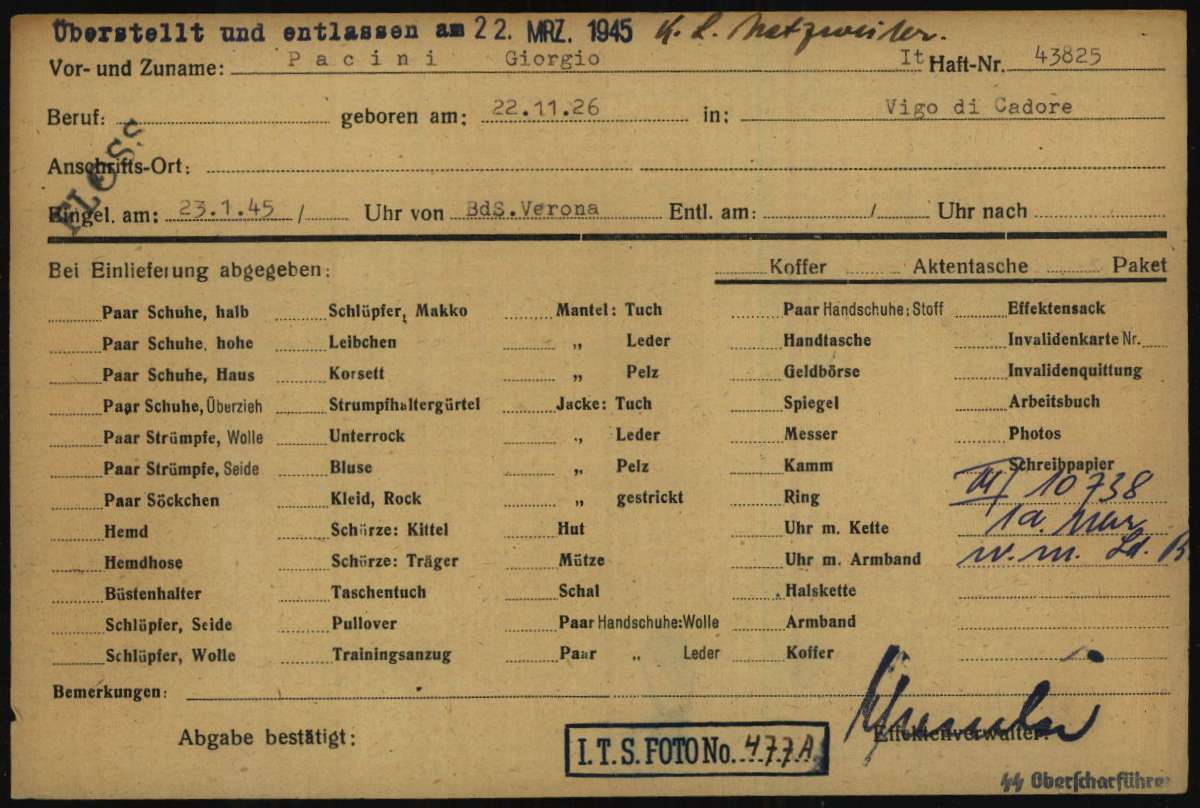 Überstellt und entlassen am 22. MRZ. 1945 K. L. Natzweiler.
Vor- und Zuname: Pacini Giorgio It Haft-Nr. 43825
Beruf: geboren am: 22.11.26 in: Vigo di Cadore
FLOSS
Anschrifts-Ort:
Eingel. am: 23.1.45 / Uhr von BdS.Verona Entl. am: / Uhr nach
Bei Einlieferung abgegeben: Koffer Aktentasche Paket
Paar Schuhe, halb Schlüpfer, Makko Mantel: Tuch Paar Handschuhe: Stoff Effektensack
Paar Schuhe, hohe Leibchen „ Leder Handtasche Invalidenkarte Nr.
Paar Schuhe, Haus Korsett „ Pelz Geldbörse Invalidenquittung
Paar Schuhe, Überzieh Strumpfhaltergürtel Jacke: Tuch Spiegel Arbeitsbuch
Paar Strümpfe, Wolle Unterrock „ Leder Messer Photos
Paar Strümpfe, Seide Bluse „ Pelz Kamm Schreibpapier
Paar Söckchen Kleid, Rock „ gestrickt Ring 10738
Hemd Schürze: Kittel Hut Uhr m. Kette
Hemdhose Schürze: Träger Mütze Uhr m. Armband
Büstenhalter Taschentuch Schal Halskette
Schlüpfer, Seide Pullover Paar Handschuhe: Wolle Armband
Schlüpfer, Wolle Trainingsanzug Paar „ Leder Koffer
Bemerkungen:
Abgabe bestätigt: I.T.S. FOTO No. 477A Effektenverwalter:
SS Oberscharführer